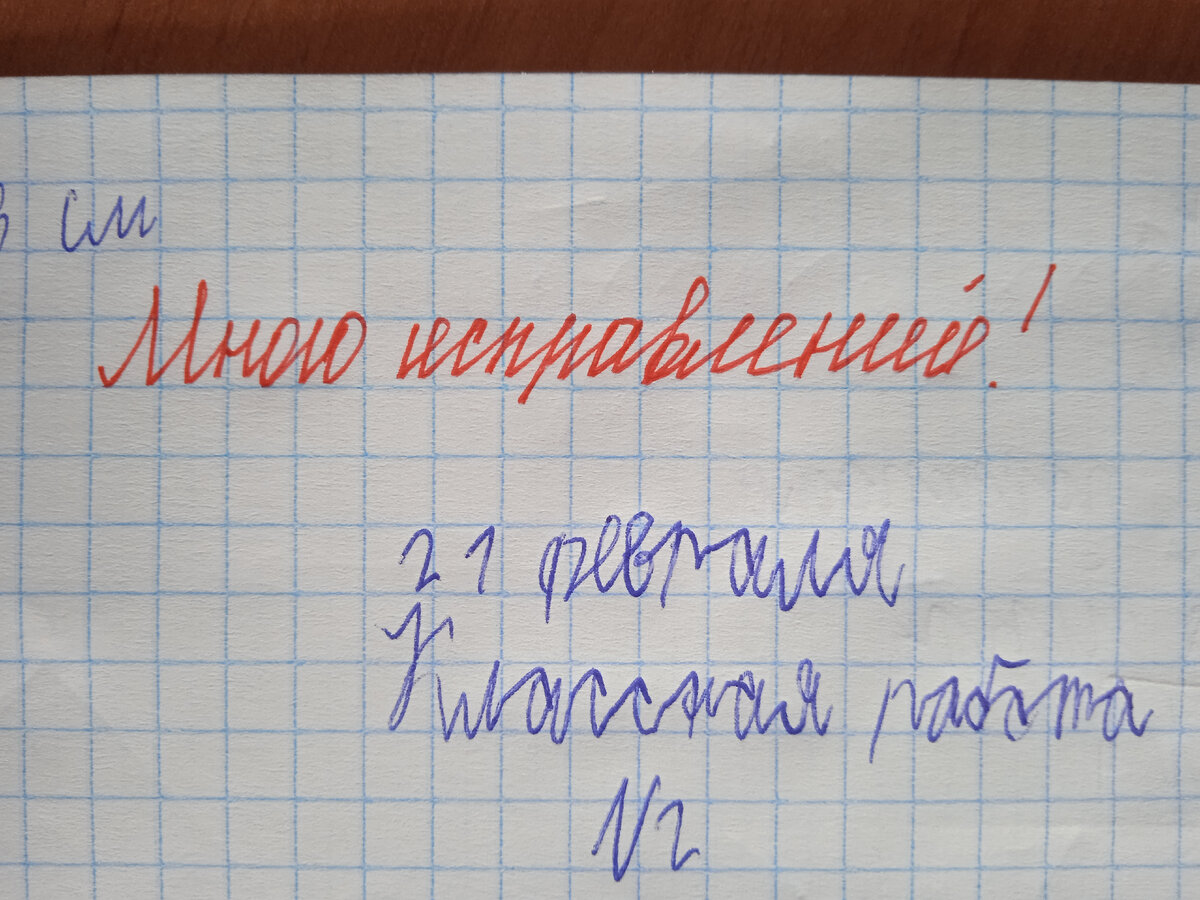 в см
Мною исправлений!
21 февраля
Классная работа
№2